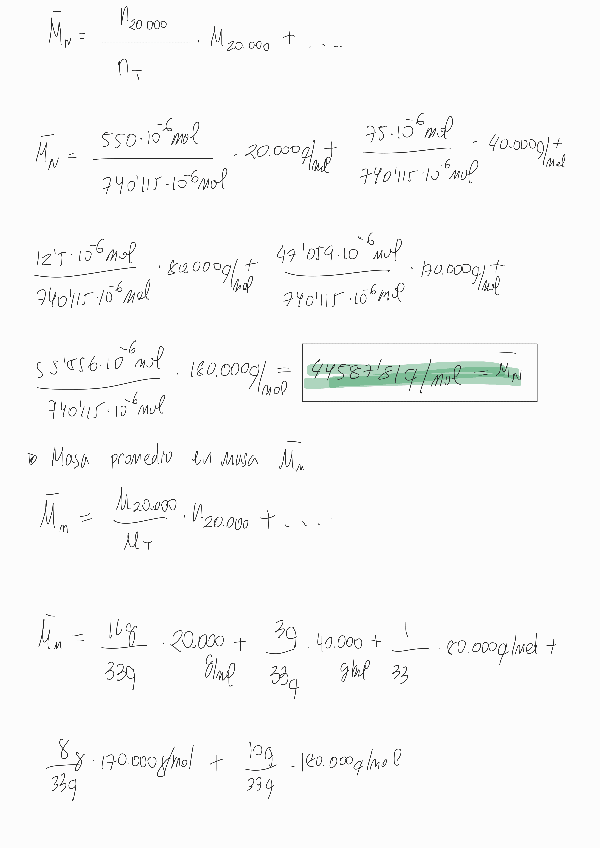 M̄N = n20.000 / nT · M20.000 + ....
M̄N = 550·10⁻⁶mol / 740'115·10⁻⁶mol · 20.000g/mol + 75·10⁻⁶mol / 740'115·10⁻⁶mol · 40.000g/mol +
12'5·10⁻⁶mol / 740'115·10⁻⁶mol · 80.000g/mol + 47'059·10⁻⁶mol / 740'115·10⁻⁶mol · 170.000g/mol +
55'556·10⁻⁶mol / 740'115·10⁻⁶mol · 180.000g/mol = 44587'81g/mol = M̄N
Masa promedio en masa M̄m
M̄m = M20.000 / MT · M20.000 + ....
M̄m = 11g / 33g · 20.000 g/mol + 3g / 33g · 40.000 g/mol + 1 / 33 · 80.000g/mol +
8g / 33g · 170.000g/mol + 10g / 33g · 180.000g/mol